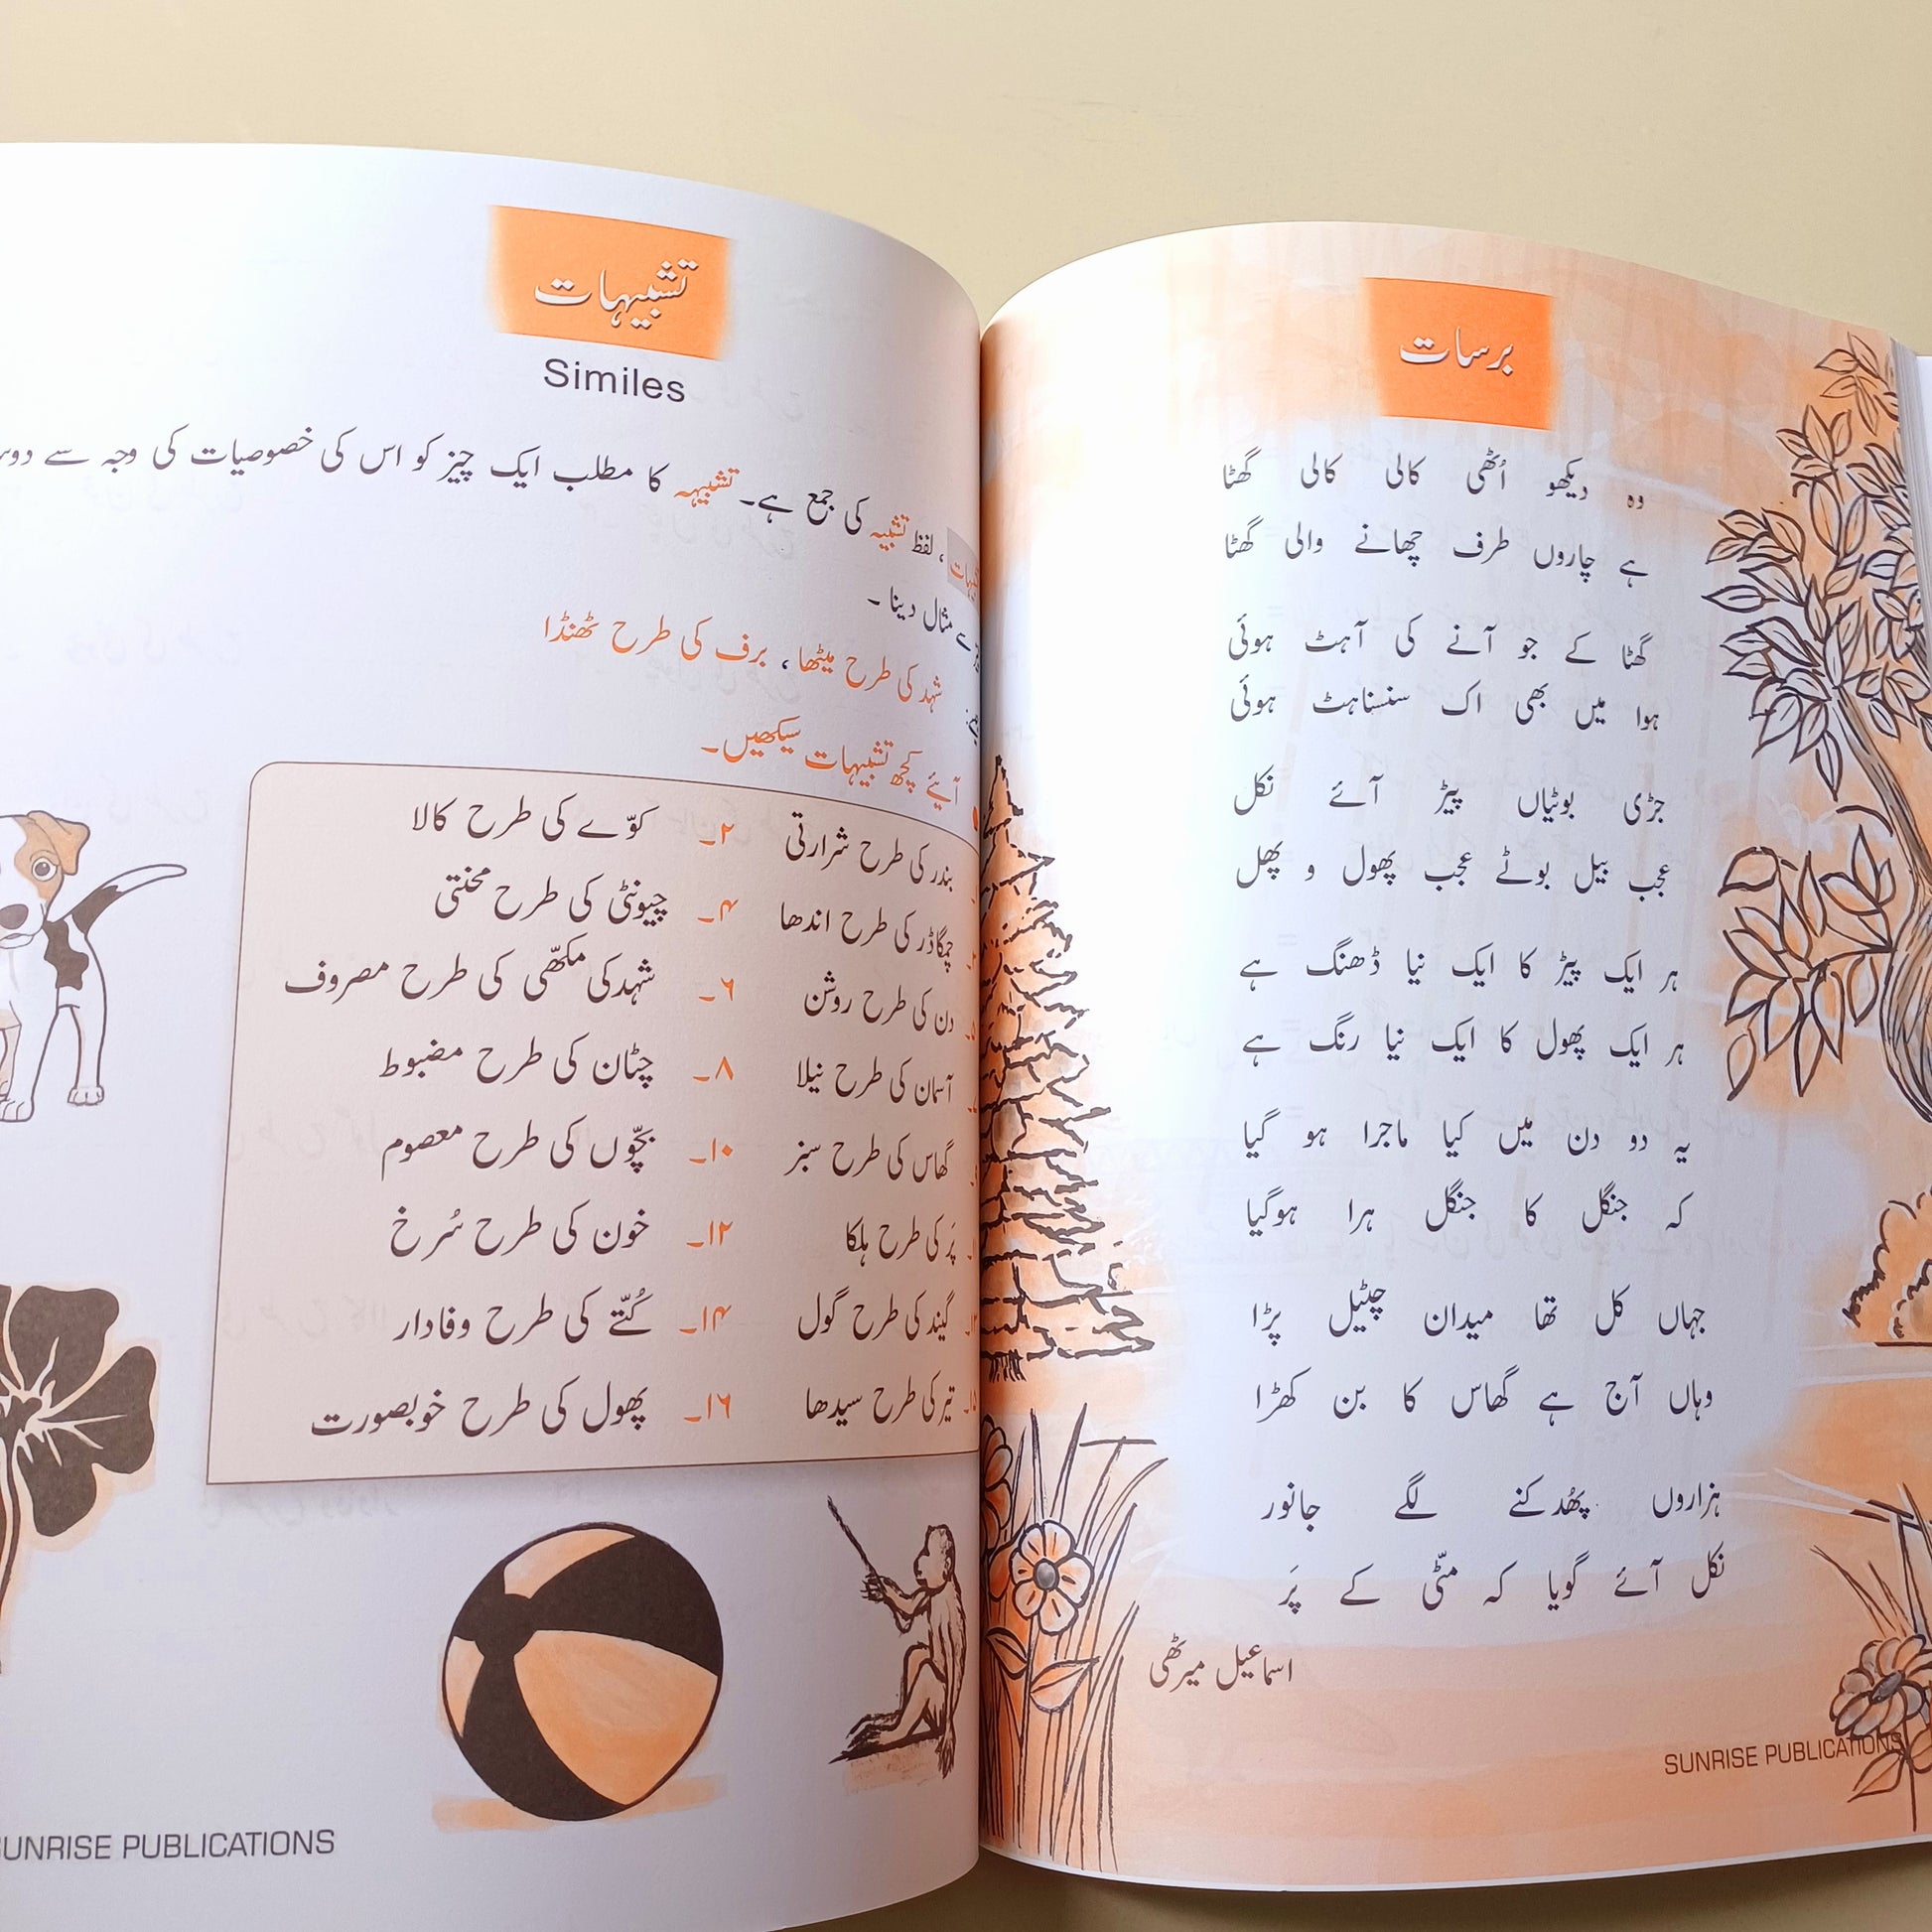 تشبیہات
Similes
تشبیہات، لفظ تشبیہ کی جمع ہے۔ تشبیہہ کا مطلب ایک چیز کو اس کی خصوصیات کی وجہ سے
سے مثال دینا ۔
شہد کی طرح میٹھا، برف کی طرح ٹھنڈا
آیئے کچھ تشبیہات سیکھیں۔
بندر کی طرح شرارتی ۲۔ کوّے کی طرح کالا
چمگادڑ کی طرح اندھا ۴۔ چیونٹی کی طرح محنتی
دن کی طرح روشن ۶۔ شہد کی مکھّی کی طرح مصروف
آسمان کی طرح نیلا ۸۔ چٹان کی طرح مضبوط
گھاس کی طرح سبز ۱۰۔ بچّوں کی طرح معصوم
پَر کی طرح ہلکا ۱۲۔ خون کی طرح سُرخ
گیند کی طرح گول ۱۴۔ کُتّے کی طرح وفادار
تیر کی طرح سیدھا ۱۶۔ پھول کی طرح خوبصورت
UNRISE PUBLICATIONS
برسات
وہ دیکھو اُٹھی کالی کالی گھٹا
ہے چاروں طرف چھانے والی گھٹا
گھٹا کے جو آنے کی آہٹ ہوئی
ہوا میں بھی اک سنسناہٹ ہوئی
جڑی بوٹیاں پیڑ آئے نکل
عجب بیل بوٹے عجب پھول و پھل
ہر ایک پیڑ کا ایک نیا ڈھنگ ہے
ہر ایک پھول کا ایک نیا رنگ ہے
یہ دو دن میں کیا ماجرا ہو گیا
کہ جنگل کا جنگل ہرا ہوگیا
جہاں کل تھا میدان چٹیل پڑا
وہاں آج ہے گھاس کا بن کھڑا
ہزاروں پھُدکنے لگے جانور
نکل آئے گویا کہ مٹّی کے پَر
اسماعیل میرٹھی
SUNRISE PUBLICATIONS